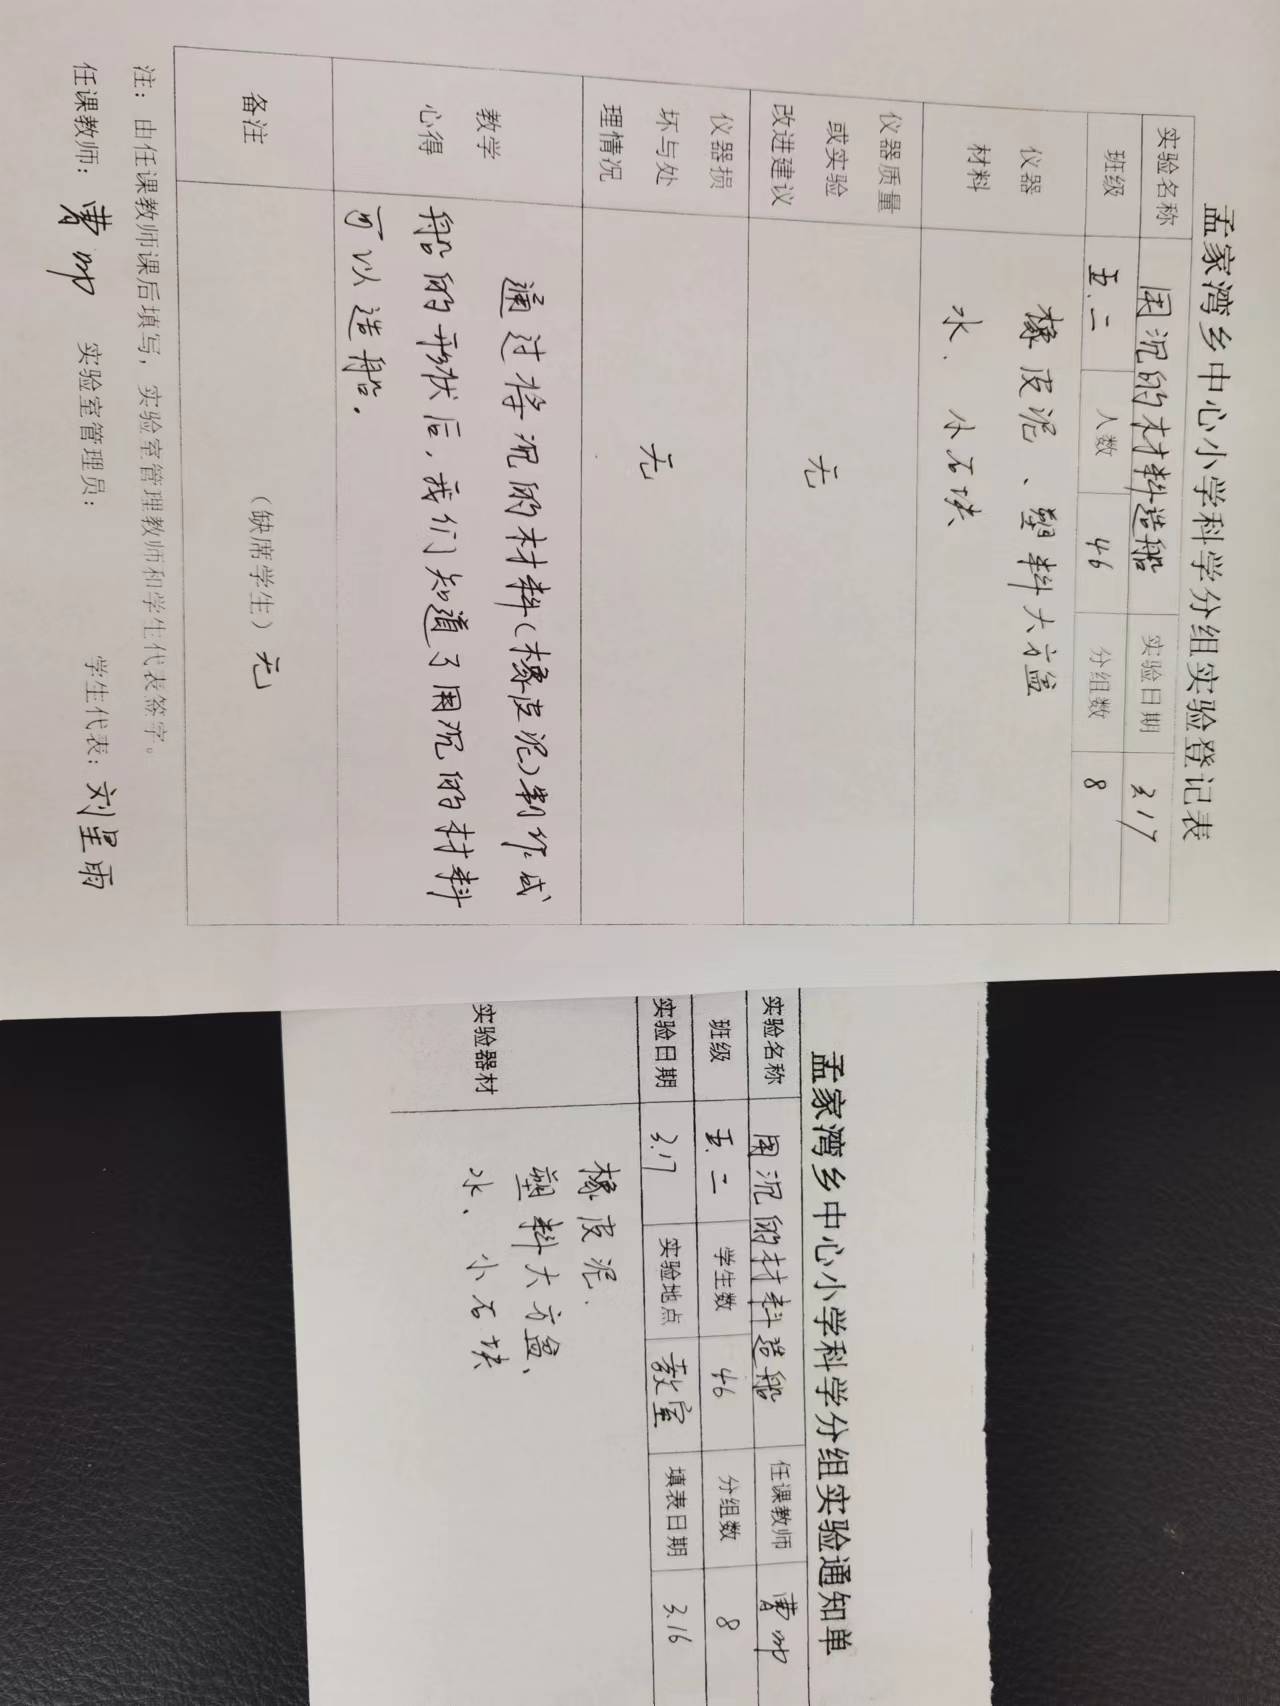 孟家湾乡中心小学科学分组实验登记表
实验名称 用沉的材料造船 实验日期 3.17
班级 五.二 人数 46 分组数 8
仪器
材料
橡皮泥、塑料大方盆
水、小石块
仪器质量
或实验
改进建议
无
仪器损
坏与处
理情况
无
教学
心得
通过将沉的材料(橡皮泥)制作成
船的形状后,我们知道了用沉的材料
可以造船.
备注
(缺席学生) 无
注:由任课教师课后填写,实验室管理教师和学生代表签字。
任课教师: 曹 实验室管理员: 学生代表: 刘星雨
孟家湾乡中心小学科学分组实验通知单
实验名称 用沉的材料造船 任课教师 曹
班级 五.二 学生数 46 分组数 8
实验日期 3.17 实验地点 教室 填表日期 3.16
实验器材
橡皮泥、
塑料大方盆、
水、小石块